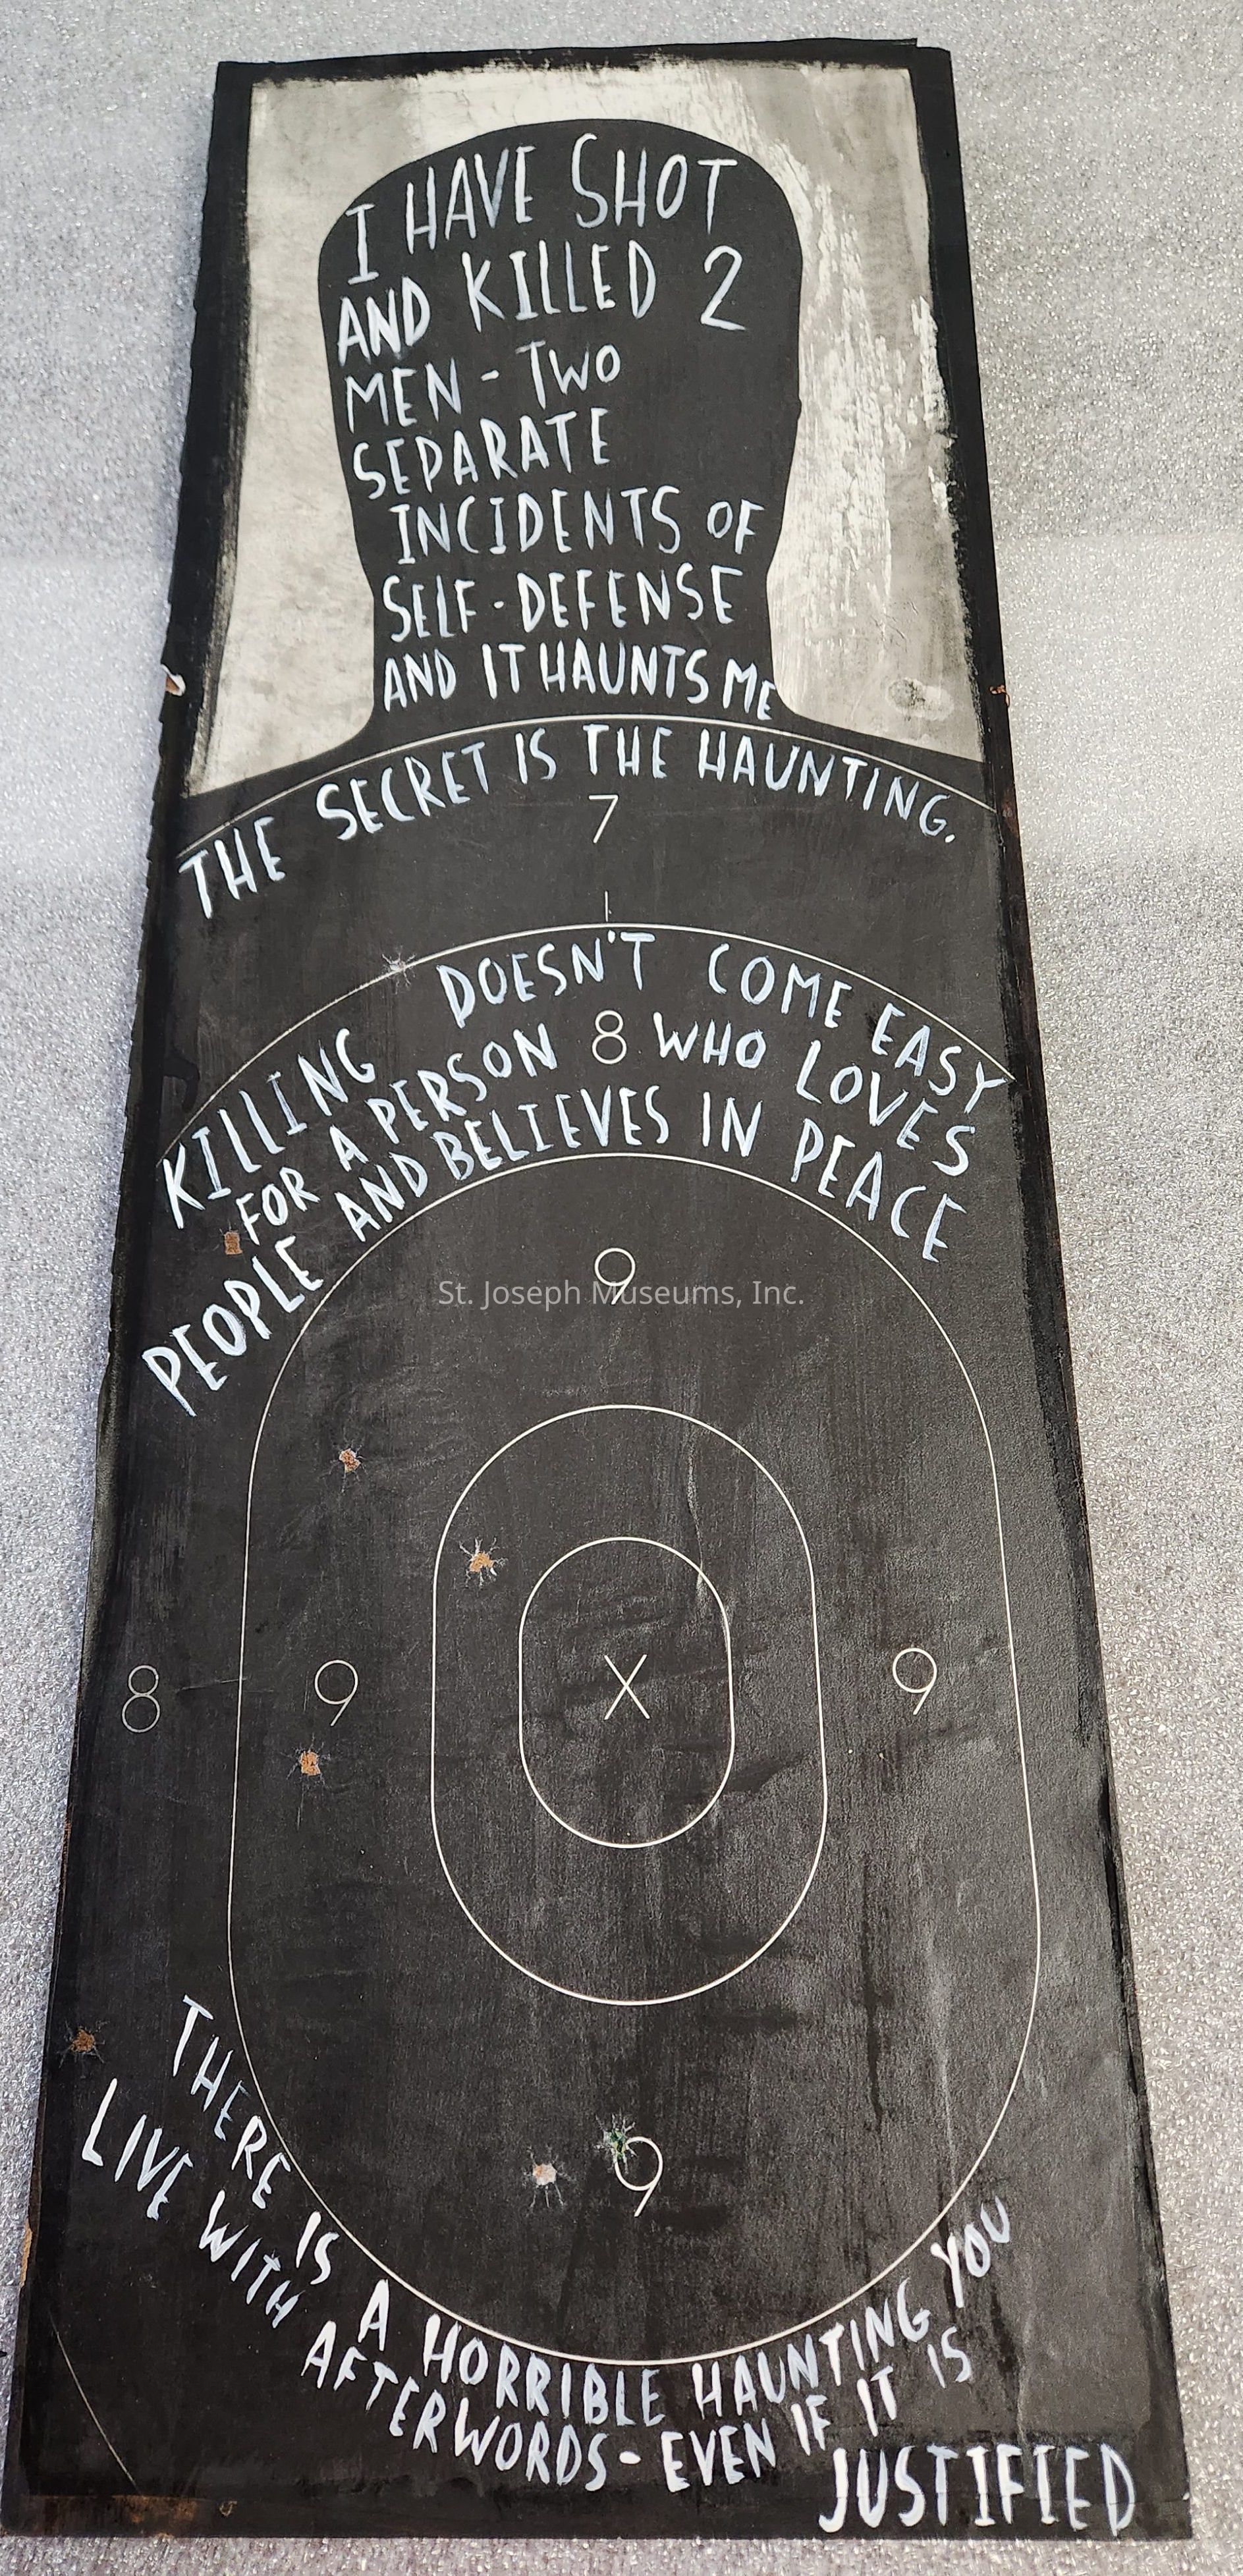 I HAVE SHOT
AND KILLED 2
MEN - TWO
SEPARATE
INCIDENTS OF
SELF-DEFENSE
AND IT HAUNTS ME
THE SECRET IS THE HAUNTING.
7
KILLING DOESN'T COME EASY
FOR A PERSON 8 WHO LOVES
PEOPLE AND BELIEVES IN PEACE
9
St. Joseph Museums, Inc.
8 9 X 9
9
THERE IS A HORRIBLE HAUNTING YOU
LIVE WITH AFTERWORDS - EVEN IF IT IS
JUSTIFIED